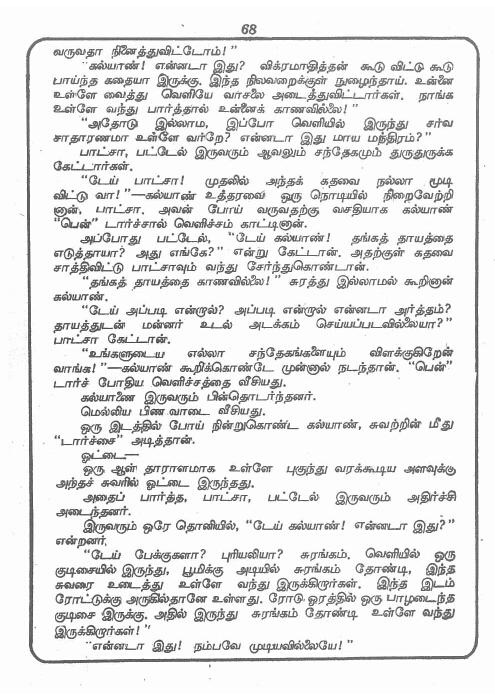 68
வருவதா நினைத்துவிட்டோம்!"
"கல்யாண்! என்னடா இது? விக்ரமாதித்தன் கூடு விட்டு கூடு
பாய்ந்த கதையா இருக்கு. இந்த நிலவறைக்குள் நுழைந்தாய். உன்னை
உள்ளே வைத்து வெளியே வாசலை அடைத்துவிட்டார்கள். நாங்க
உள்ளே வந்து பார்த்தால் உன்னைக் காணவில்லை!"
"அதோடு இல்லாம, இப்போ வெளியில் இருந்து சர்வ
சாதாரணமா உள்ளே வர்றே? என்னடா இது மாய மந்திரம்?"
பாட்சா, பட்டேல் இருவரும் ஆவலும் சந்தேகமும் துருதுருக்க
கேட்டார்கள்.
"டேய் பாட்சா! முதலில் அந்தக் கதவை நல்லா மூடி
விட்டு வா!"—கல்யாண் உத்தரவை ஒரு நொடியில் நிறைவேற்றி
னான், பாட்சா. அவன் போய் வருவதற்கு வசதியாக கல்யாண்
"பென்" டார்ச்சால் வெளிச்சம் காட்டினான்.
அப்போது பட்டேல், "டேய் கல்யாண்! தங்கத் தாயத்தை
எடுத்தாயா? அது எங்கே?" என்று கேட்டான். அதற்குள் கதவை
சாத்திவிட்டு பாட்சாவும் வந்து சேர்ந்துகொண்டான்.
"தங்கத் தாயத்தை காணவில்லை!" சுரத்து இல்லாமல் கூறினான்
கல்யாண்.
"டேய் அப்படி என்றால்? அப்படி என்றால் என்னடா அர்த்தம்?
தாயத்துடன் மன்னர் உடல் அடக்கம் செய்யப்படவில்லையா?"
பாட்சா கேட்டான்.
"உங்களுடைய எல்லா சந்தேகங்களையும் விளக்குகிறேன்
வாங்க!"—கல்யாண் கூறிக்கொண்டே முன்னால் நடந்தான். "பென்"
டார்ச் போதிய வெளிச்சத்தை வீசியது.
கல்யாணை இருவரும் பின்தொடர்ந்தனர்.
மெல்லிய பிண வாடை வீசியது.
ஒரு இடத்தில் போய் நின்றுகொண்ட கல்யாண், சுவற்றின் மீது
"டார்ச்சை" அடித்தான்.
ஓட்டை—
ஒரு ஆள் தாராளமாக உள்ளே புகுந்து வரக்கூடிய அளவுக்கு
அந்தச் சுவரில் ஓட்டை இருந்தது.
அதைப் பார்த்த, பாட்சா, பட்டேல் இருவரும் அதிர்ச்சி
அடைந்தனர்.
இருவரும் ஒரே தொனியில், "டேய் கல்யாண்! என்னடா இது?"
என்றனர்.
"டேய் பேக்குகளா? புரியலியா? சுரங்கம். வெளியில் ஒரு
குடிசையில் இருந்து, பூமிக்கு அடியில் சுரங்கம் தோண்டி, இந்த
சுவரை உடைத்து உள்ளே வந்து இருக்கிறார்கள். இந்த இடம்
ரோட்டுக்கு அருகில்தானே உள்ளது. ரோடு ஓரத்தில் ஒரு பாழடைந்த
குடிசை இருக்கு. அதில் இருந்து சுரங்கம் தோண்டி உள்ளே வந்து
இருக்கிறார்கள்!"
"என்னடா இது! நம்பவே முடியவில்லையே!"